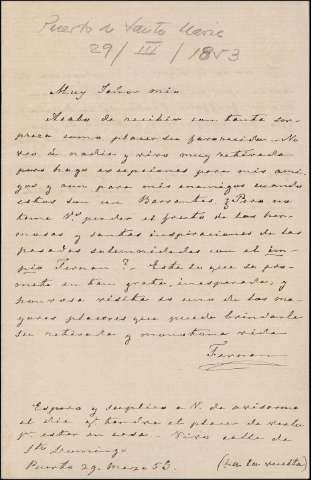 Puerto de Santa Maria
29/ III / 1853
Muy Señor mio
Acabo de recibir con tanta sor-
presa como placer su favorecida. No
veo á nadie y vivo muy retirada
pero hago esepciones para mis ami-
gos y aun para mis enemigos cuando
estos son un Barrantes. ¿Pero no
teme V. perder el fruto de las her-
mosas y santas inspiraciones de las
pasadas solemnidades con el im-
pio Fernan? - Este lo que se pro-
mete en tan grata, inesperada, y
honrosa visita es uno de los ma-
yores placeres que puede brindarle
su retirada y monotona vida
Fernan
Espero y suplico a V. de avisarme
el dia q.e tendre el placer de verlo
p.a estar en casa - Vivo calle de
Sto Domingo
Puerto 29. Marzo 53.
(a la vuelta)